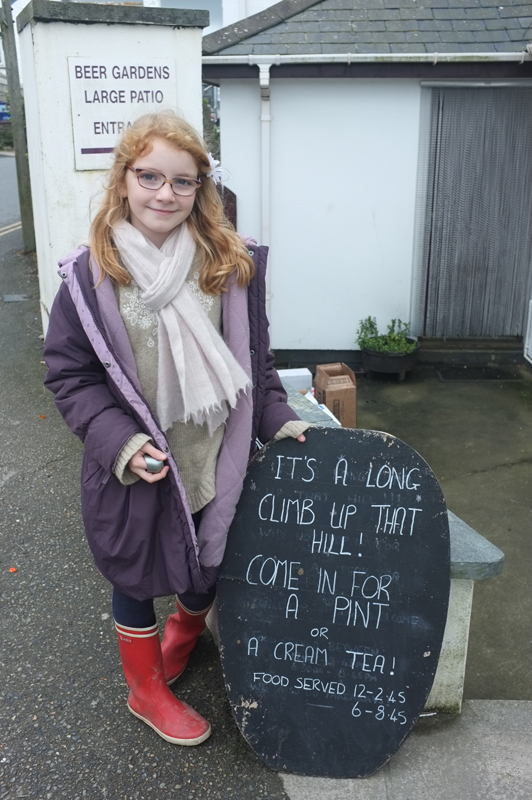 BEER GARDENS
LARGE PATIO
IT'S A LONG
CLIMB UP THAT
HILL!
COME IN FOR
A PINT
OR
A CREAM TEA!
FOOD SERVED 12-2.45
6-8.45